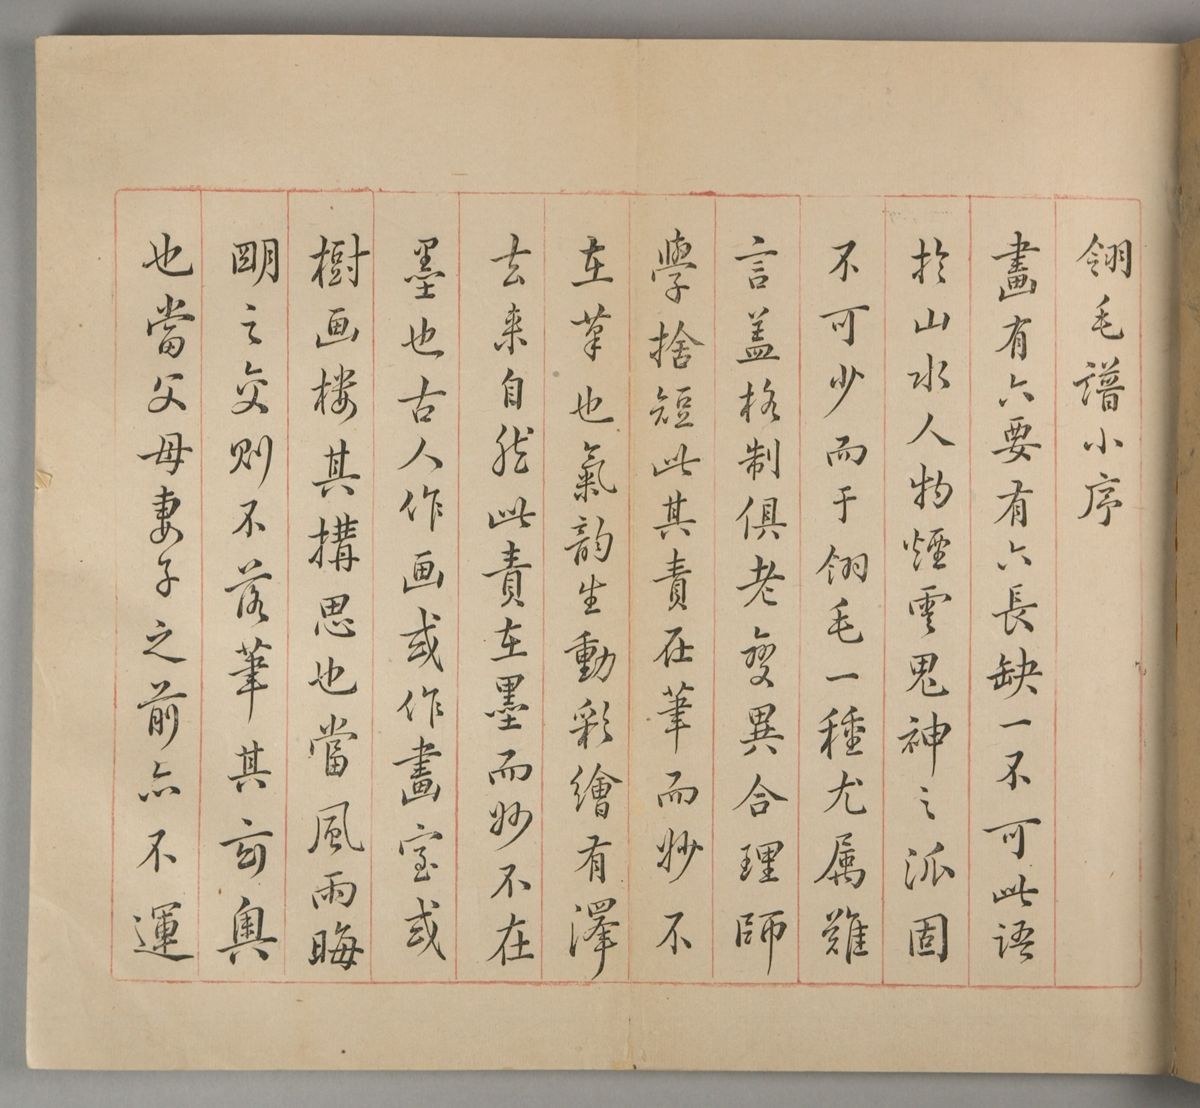 翎毛譜小序
畫有六要有六長缺一不可此語
於山水人物煙雲鬼神之派固
不可少而于翎毛一種尤属難
言盖格制俱老變異合理師
學捨短此其責在筆而妙不
在筆也氣韵生動彩繪有澤
去来自然此責在墨而妙不在
墨也古人作画或作畫室或
樹画楼其搆思也當風雨晦
明之交則不落筆其玄奥
也當父母妻子之前亦不運